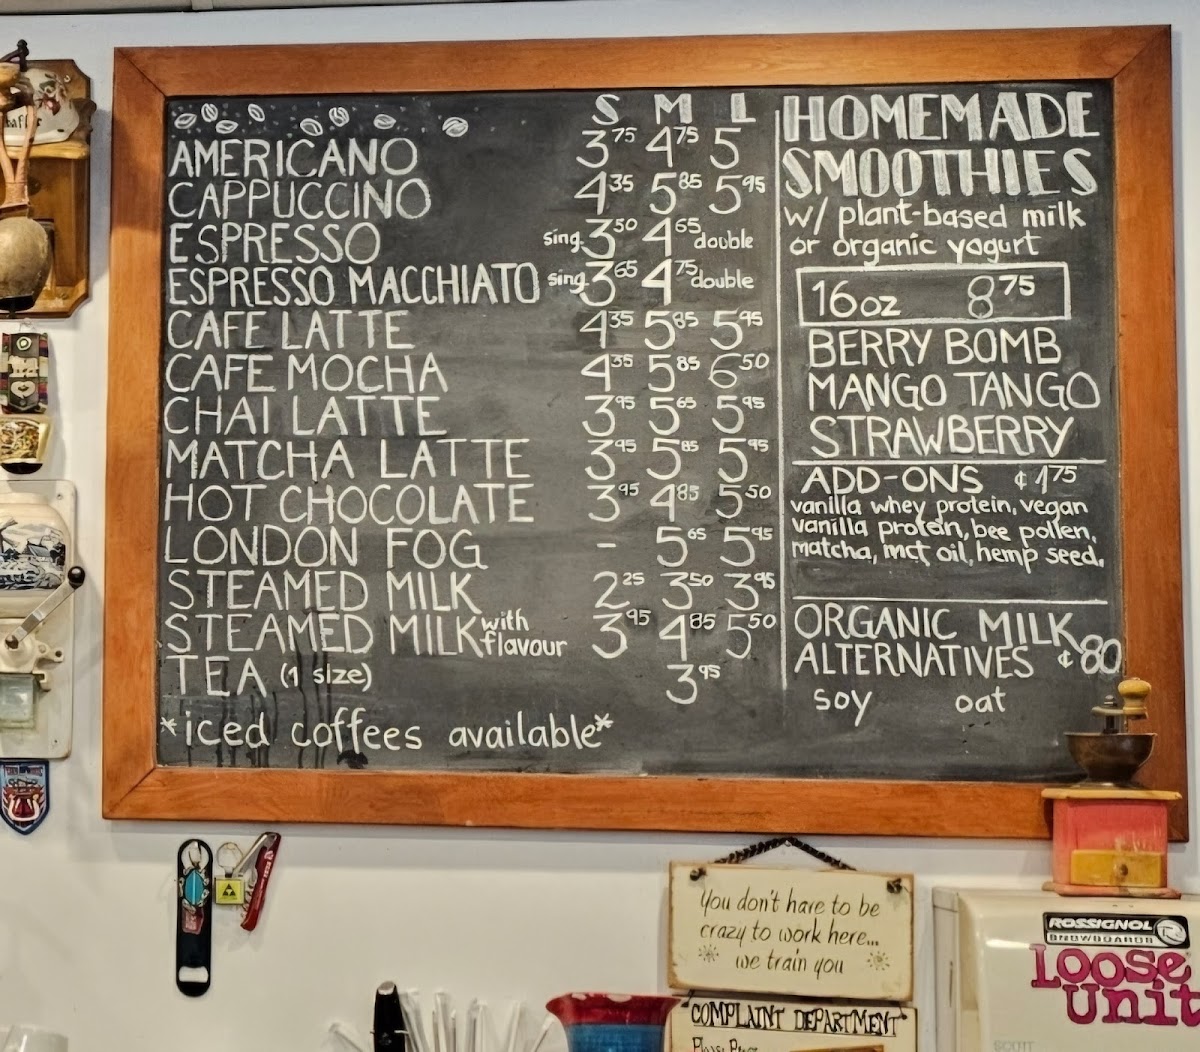 S M L
AMERICANO 3.75 4.75 5
CAPPUCCINO 4.35 5.85 5.95
ESPRESSO sing. 3.50 4.65 double
ESPRESSO MACCHIATO sing. 3.65 4.75 double
CAFE LATTE 4.35 5.85 5.95
CAFE MOCHA 4.35 5.85 6.50
CHAI LATTE 3.95 5.65 5.95
MATCHA LATTE 3.95 5.85 5.95
HOT CHOCOLATE 3.95 4.85 5.50
LONDON FOG - 5.65 5.95
STEAMED MILK 2.25 3.50 3.95
STEAMED MILK with flavour 3.95 4.85 5.50
TEA (1 size) 3.95
*iced coffees available*
HOMEMADE
SMOOTHIES
w/ plant-based milk
or organic yogurt
16oz 8.75
BERRY BOMB
MANGO TANGO
STRAWBERRY
ADD-ONS ¢ 1.75
vanilla whey protein, vegan
vanilla protein, bee pollen,
matcha, mct oil, hemp seed.
ORGANIC MILK
ALTERNATIVES ¢80
soy oat
You don't have to be
crazy to work here...
we train you
COMPLAINT DEPARTMENT
ROSSIGNOL
SNOWBOARDS
Loose
Unit
SCOTT